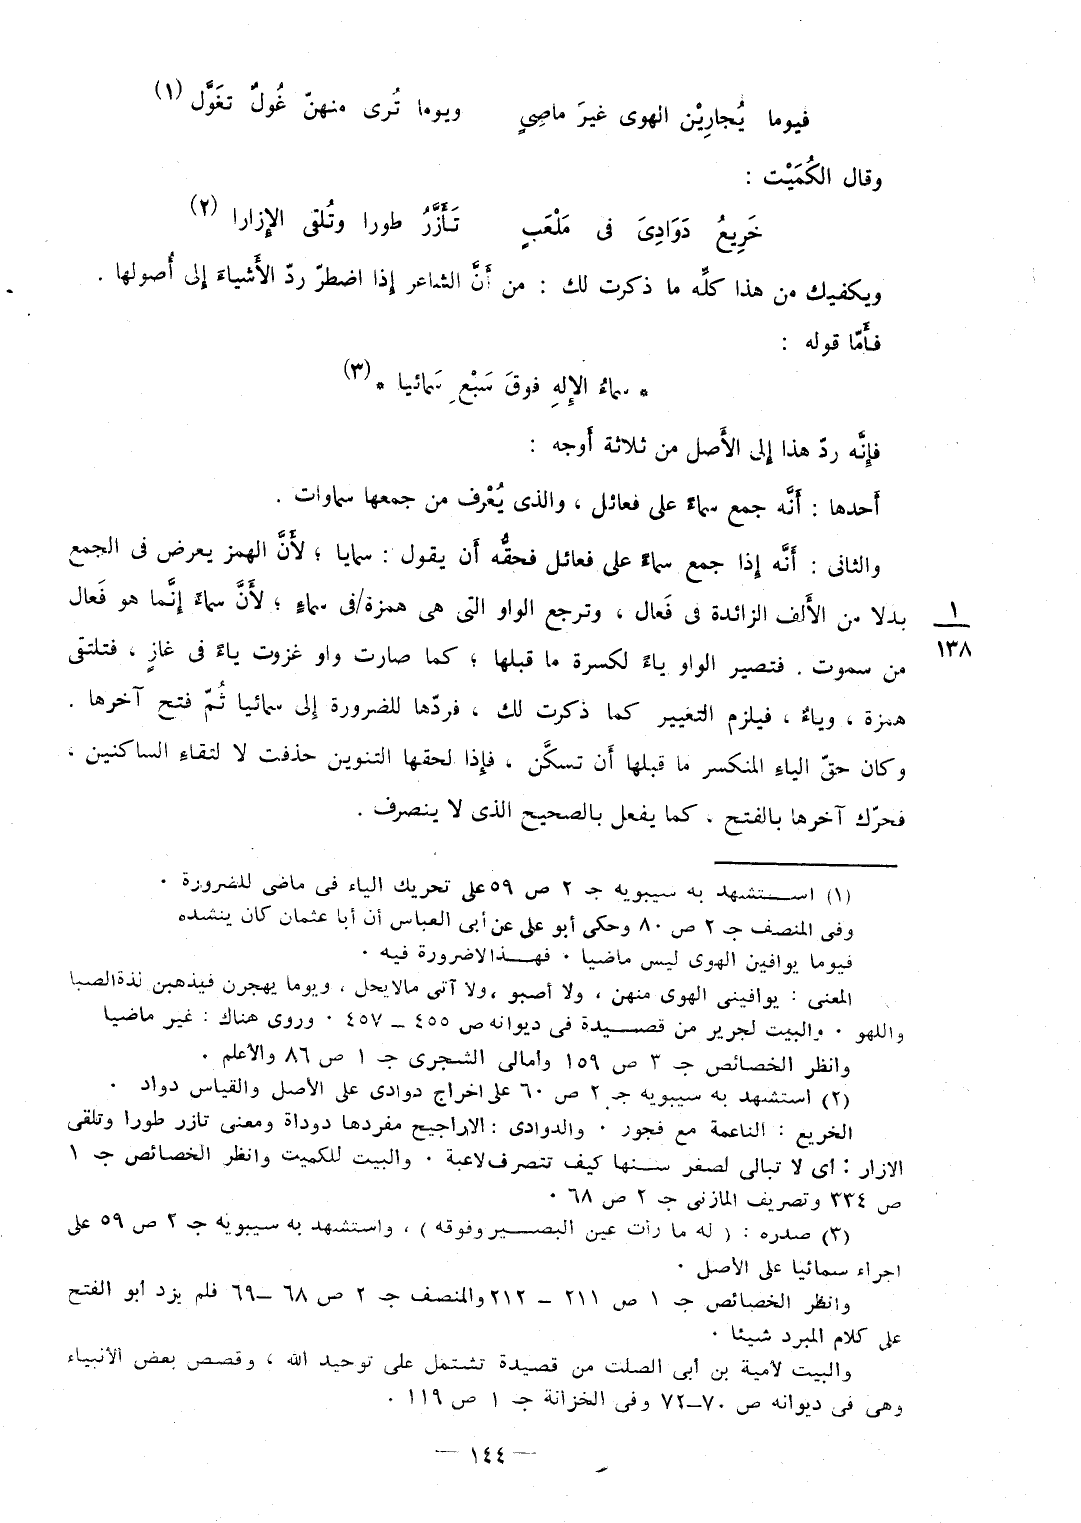 فيوما يُجارِيْن الهوى غيرَ ماضِيٍ ويوما تُرى منهنّ غُولٌ تغَوَّل (١)
وقال الكُمَيْت :
خَرِيعُ دَوَادِىَ فى مَلْعَبٍ تَأَزَّرُ طورا وتُلقى الإِزارا (٢)
ويكفيك من هذا كلِّه ما ذكرت لك : من أَنَّ الشاعر إذا اضطرّ ردّ الأَشياءَ إلى أُصولها .
فأَمّا قوله :
* سماءُ الإِلهِ فوقَ سَبْعِ سَمائيا * (٣)
فإِنَّه ردّ هذا إلى الأَصل من ثلاثة أَوجه :
أَحدها : أَنَّه جمع سماءً على فعائل ، والذى يُعْرف من جمعها سماوات .
والثانى : أَنَّه إذا جمع سماءً على فعائل فحقُّه أَن يقول : سمايا ؛ لأَنَّ الهمز يعرض فى الجمع
بدلا من الأَلف الزائدة فى فَعال ، وترجع الواو التى هى همزة/فى سماءٍ ؛ لأَنَّ سماءً إنَّما هو فَعال
١
١٣٨
من سموت . فتصير الواو ياءً لكسرة ما قبلها ؛ كما صارت واو غزوت ياءً فى غازٍ ، فتلتقى
همزة ، وياءٌ ، فيلزم التغيير كما ذكرت لك ، فردّها للضرورة إلى سمائيا ثُمّ فتح آخرها .
وكان حقّ الياءِ المنكسر ما قبلها أَن تسكَّن ، فإِذا لحقها التنوين حذفت لا لتقاءِ الساكنين ،
فحرّك آخرها بالفتح ، كما يفعل بالصحيح الذى لا ينصرف .
(١) استشهد به سيبويه جـ ٢ ص ٥٩ على تحريك الياء فى ماضى للضرورة ٠
وفى المنصف جـ ٢ ص ٨٠ وحكى أبو على عن أبى العباس أن أبا عثمان كان ينشده
فيوما يوافين الهوى ليس ماضيا ٠ فهذا لاضرورة فيه ٠
المعنى : يوافينى الهوى منهن ، ولا أصبو ، ولا آتى مالايحل ، ويوما يهجرن فيذهبن لذة الصبا
واللهو ٠ والبيت لجرير من قصيدة فى ديوانه ص ٤٥٥ ــ ٤٥٧ ٠ وروى هناك : غير ماضيا
وانظر الخصائص جـ ٣ ص ١٥٩ وأمالى الشجرى جـ ١ ص ٨٦ والأعلم .
(٢) استشهد به سيبويه جـ ٢ ص ٦٠ على اخراج دوادى على الأصل والقياس دواد ٠
الخريع : الناعمة مع فجور ٠ والدوادى : الاراجيح مفردها دوداة ومعنى تازر طورا وتلقى
الازار : أى لا تبالى لصغر سنها كيف تتصرف لاعبة ٠ والبيت للكميت وانظر الخصائص جـ ١
ص ٣٣٤ وتصريف المازنى جـ ٢ ص ٦٨ ٠
(٣) صدره : ( له ما رأت عين البصير وفوقه ) ، واستشهد به سيبويه جـ ٢ ص ٥٩ على
اجراء سمائيا على الأصل ٠
وانظر الخصائص جـ ١ ص ٢١١ ــ ٢١٢ والمنصف جـ ٢ ص ٦٨ ــ ٦٩ فلم يزد أبو الفتح
على كلام المبرد شيئا ٠
والبيت لأمية بن أبى الصلت من قصيدة تشتمل على توحيد الله ، وقصص بعض الأنبياء
وهى فى ديوانه ص ٧٠ــ٧٢ وفى الخزانة جـ ١ ص ١١٩ ٠
— ١٤٤ —